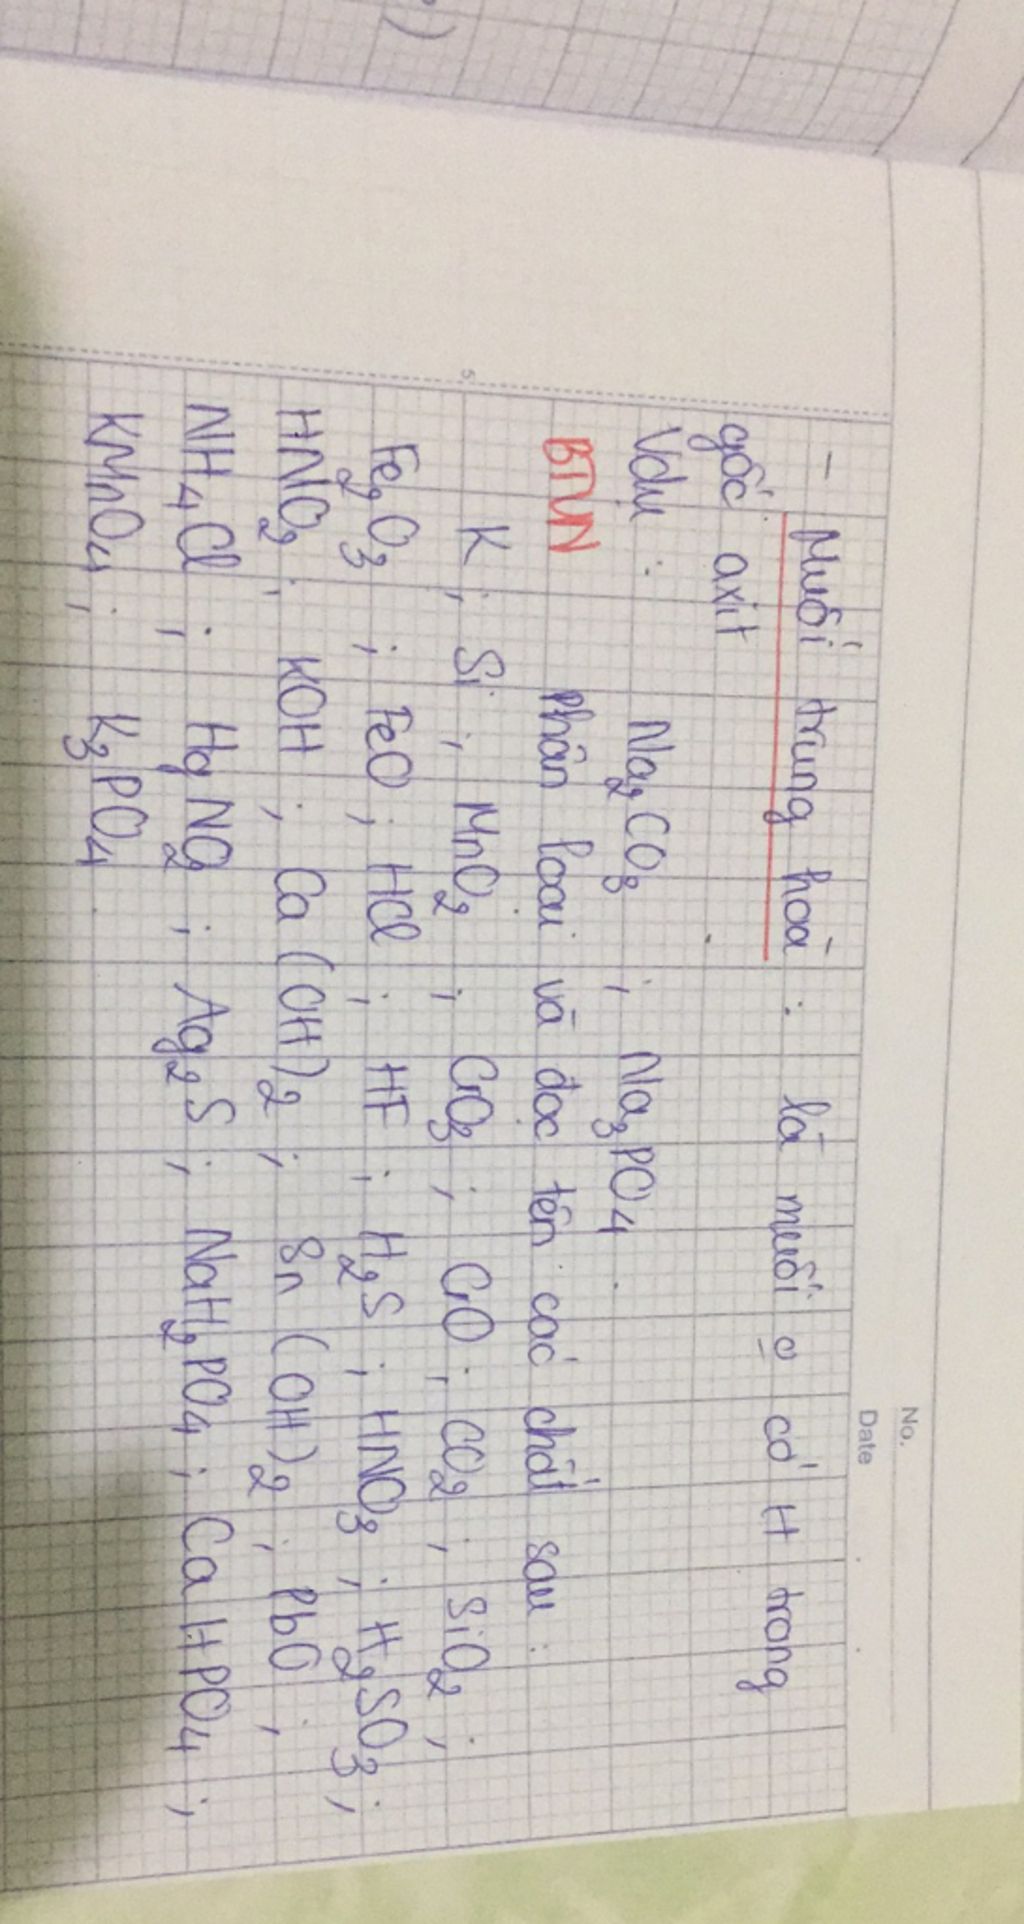 No.
Date
- Muối trung hoà : là muối o có H trong
gốc axit
Vdụ : Na2CO3 ; Na3PO4 .
BTVN Phân loại và đọc tên các chất sau :
5
K ; Si ; MnO2 ; CrO3 ; CrO ; CO2 ; SiO2 ;
Fe2O3 ; FeO ; HCl ; HF ; H2S ; HNO3 ; H2SO3 ;
HNO2 ; KOH ; Ca(OH)2 ; Sn(OH)2 ; PbO ;
NH4Cl ; ; Ag2S ; NaH2PO4 ; CaHPO4 ;
KMnO4 ; K3PO4